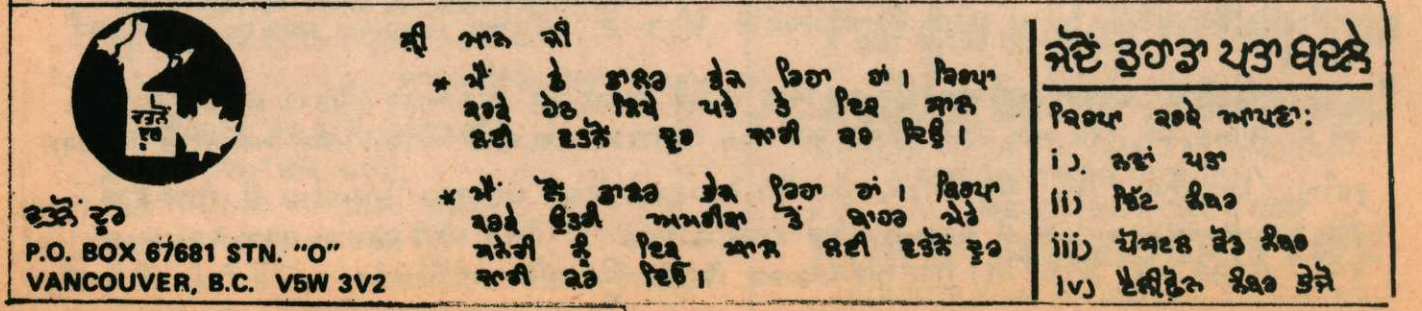 ਵਤਨੋਂ
ਦੂਰ
ਵਤਨੋਂ ਦੂਰ
P.O. BOX 67681 STN. "O"
VANCOUVER, B.C. V5W 3V2
ਸ਼੍ਰੀ ਮਾਨ ਜੀ
* ਮੈਂ ਡਾਲਰ ਭੇਜ ਰਿਹਾ ਹਾਂ। ਕਿਰਪਾ
ਕਰਕੇ ਹੇਠ ਲਿਖੇ ਪਤੇ ਤੇ ਇਕ ਸਾਲ
ਲਈ ਵਤਨੋਂ ਦੂਰ ਜਾਰੀ ਕਰ ਦਿਉ।
* ਮੈਂ ਡਾਲਰ ਭੇਜ ਰਿਹਾ ਹਾਂ। ਕਿਰਪਾ
ਕਰਕੇ ਉਤਰੀ ਅਮਰੀਕਾ ਤੋਂ ਬਾਹਰ ਮੇਰੇ
ਸਨੇਹੀ ਨੂੰ ਇਕ ਸਾਲ ਲਈ ਵਤਨੋਂ ਦੂਰ
ਜਾਰੀ ਕਰ ਦਿਓ।
ਜਦੋਂ ਤੁਹਾਡਾ ਪਤਾ ਬਦਲੇ
ਕਿਰਪਾ ਕਰਕੇ ਆਪਣਾ:
i). ਨਵਾਂ ਪਤਾ
ii) ਯਿੱਟ ਨੰਬਰ
iii) ਪੋਸਟਲ ਕੋਡ ਨੰਬਰ
iv) ਟੈਲੀਫੋਨ ਨੰਬਰ ਭੇਜੋ